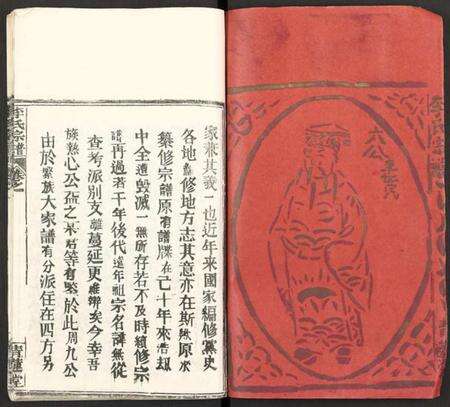 家兼其義一也近年來國家編修黨史
各地編修地方志其意亦在斯原
築修宗譜原有譜牒在己十年來浩劫
中全遭毀滅一無所存若不及時續修宗
譜再過若干年後代遠年祖宗名諱無從
查考派別支離蔓延更難辨矣今幸吾
族熱心公益之若等有鑒於此周九公
由於繁族大家譜有分派住在四方另
李氏宗譜
卷之一
青蓮堂
六公
李氏宗譜